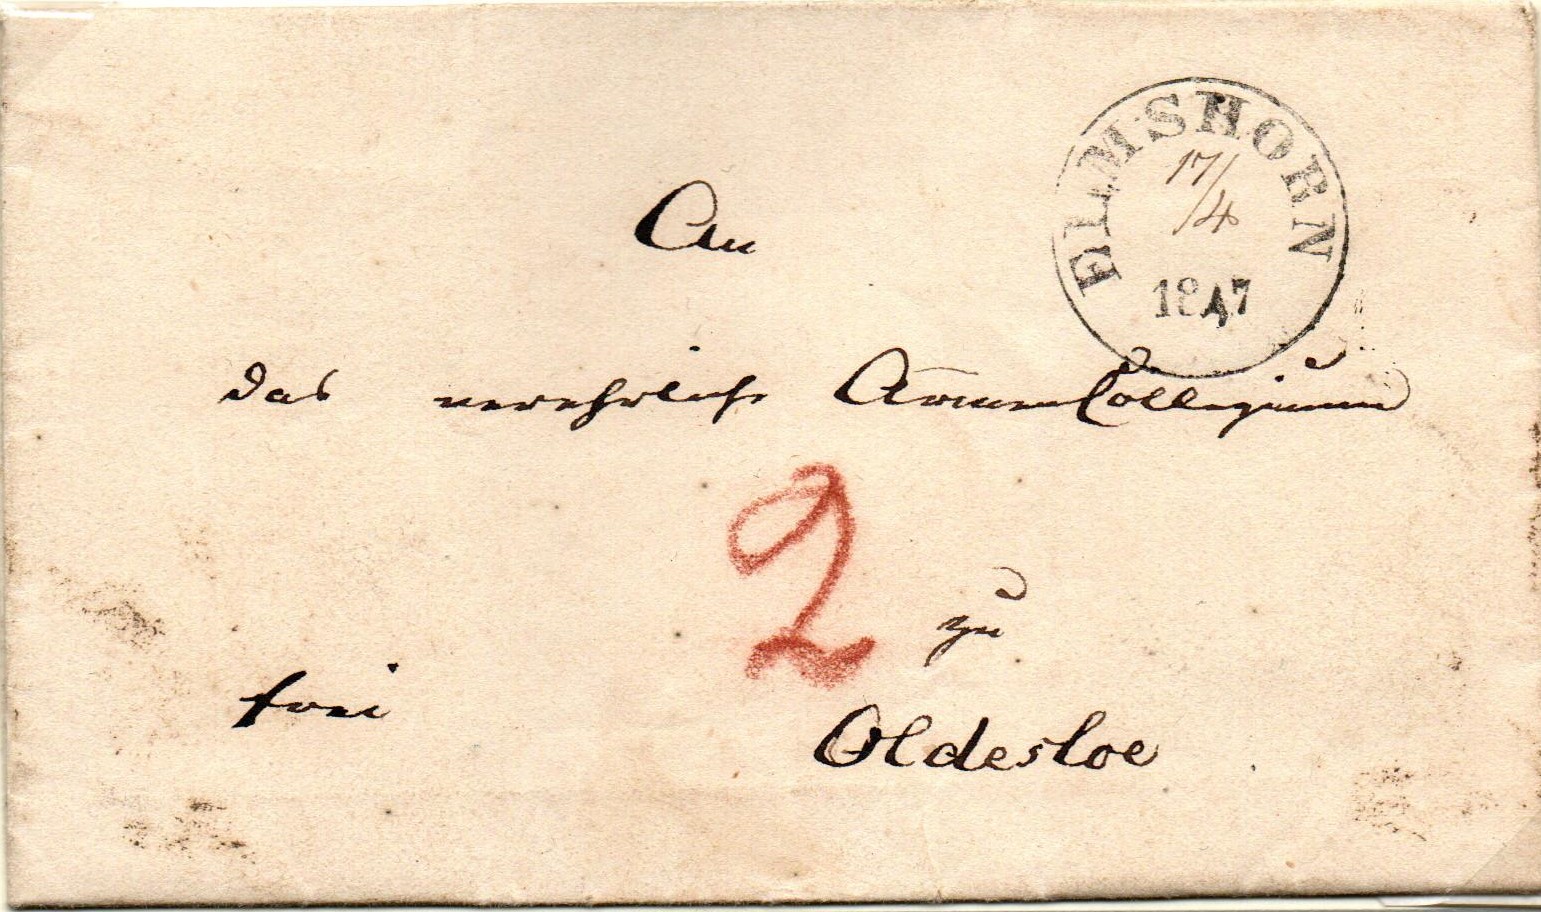 ELMSHORN
17/4
1847
An
das verehrliche Armen Collegium
2
zu
frei
Oldesloe